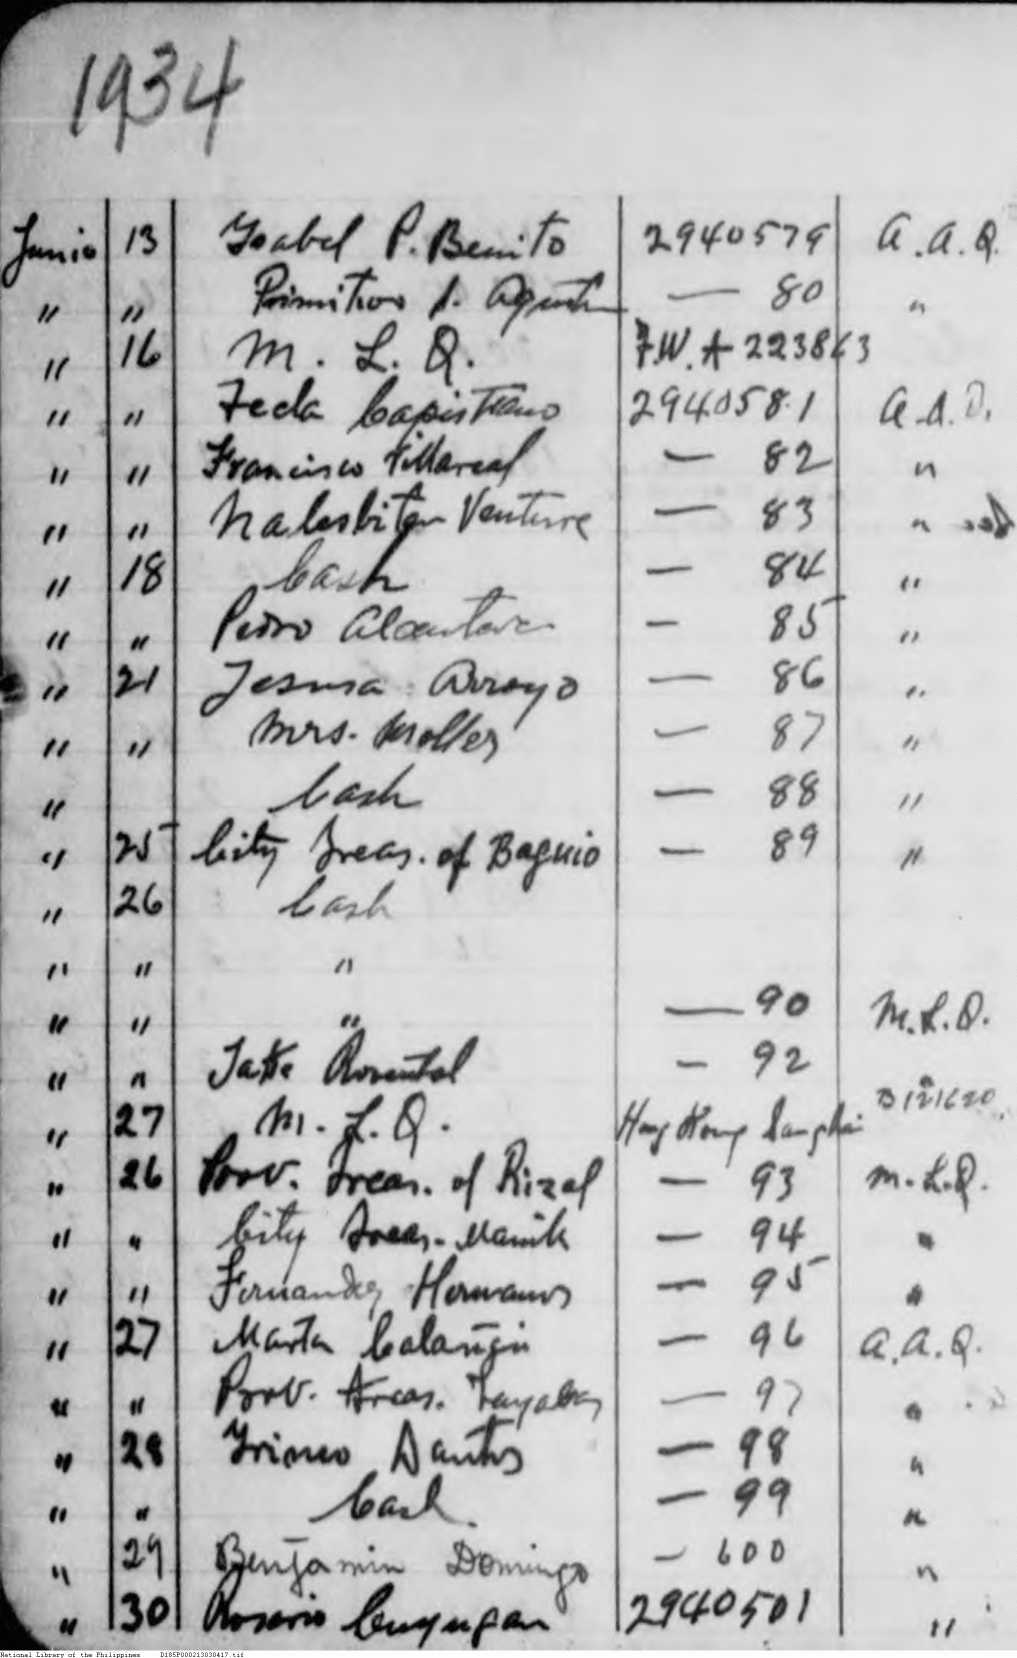 1934
Junio 13 Ysabel P. Benito 2940579 A.A.Q.
" " Primitivo A. — 80 "
" 16 M. L. Q. F.W. A 223863
" " Tecla Capistrano 2940581 A.A.Q.
" " Francisco Villareal — 82 "
" " Venture — 83 "
" 18 Cash — 84 "
" " Pedro Alcantara — 85 "
" 21 Jesusa Arroyo — 86 "
" " Mrs. — 87 "
" Cash — 88 "
" 25 City Treas. of Baguio — 89 "
" 26 Cash
" " "
" " " — 90 M.L.Q.
" " — 92
" 27 M. L. Q. Hong Kong
" 26 Prov. Treas. of Rizal — 93 M.L.Q.
" " City Treas. Manila — 94 "
" " Fernandez Hermanos — 95 "
" 27 Marta — 96 A.A.Q.
" " Prov. Treas. Tayabas — 97 "
" 28 Yrineo — 98 "
" " Cash. — 99 "
" 29 Benjamin Domingo — 600 "
" 30 Rosario Cuyugan 2940501 "
National Library of the Philippines D185P000213030417.tif